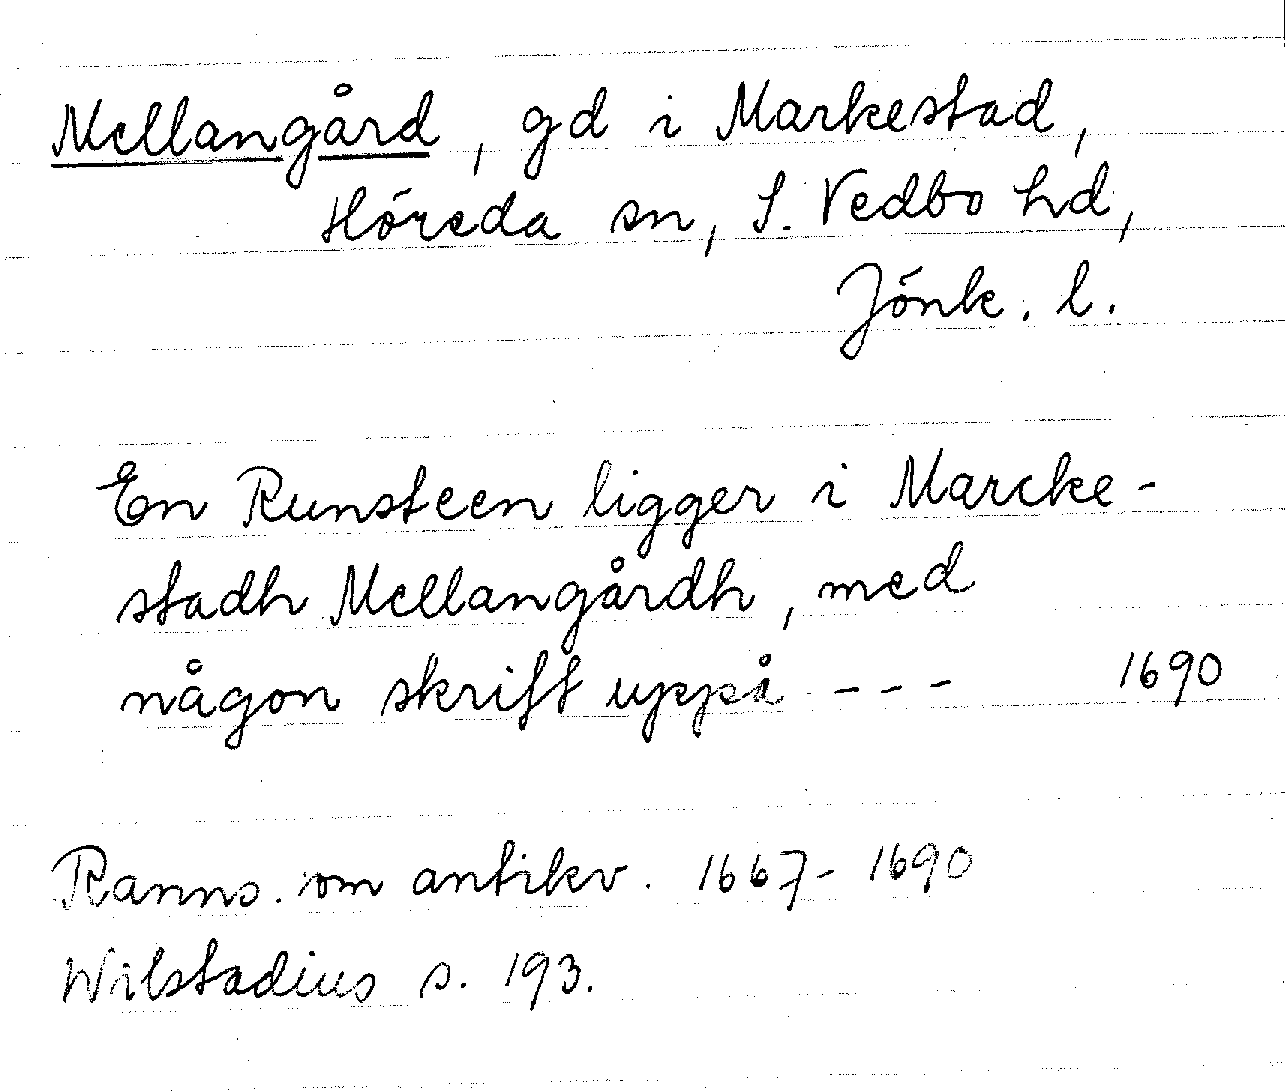 Mellangård, gd i Markestad,
Höreda sn, S. Vedbo hd,
Jönk. l.
En Runsteen ligger i Marcke-
stadh Mellangårdh, med
någon skrift uppå --- 1690
Ranns. om antikv. 1667-1690
Wilstadius s. 193.